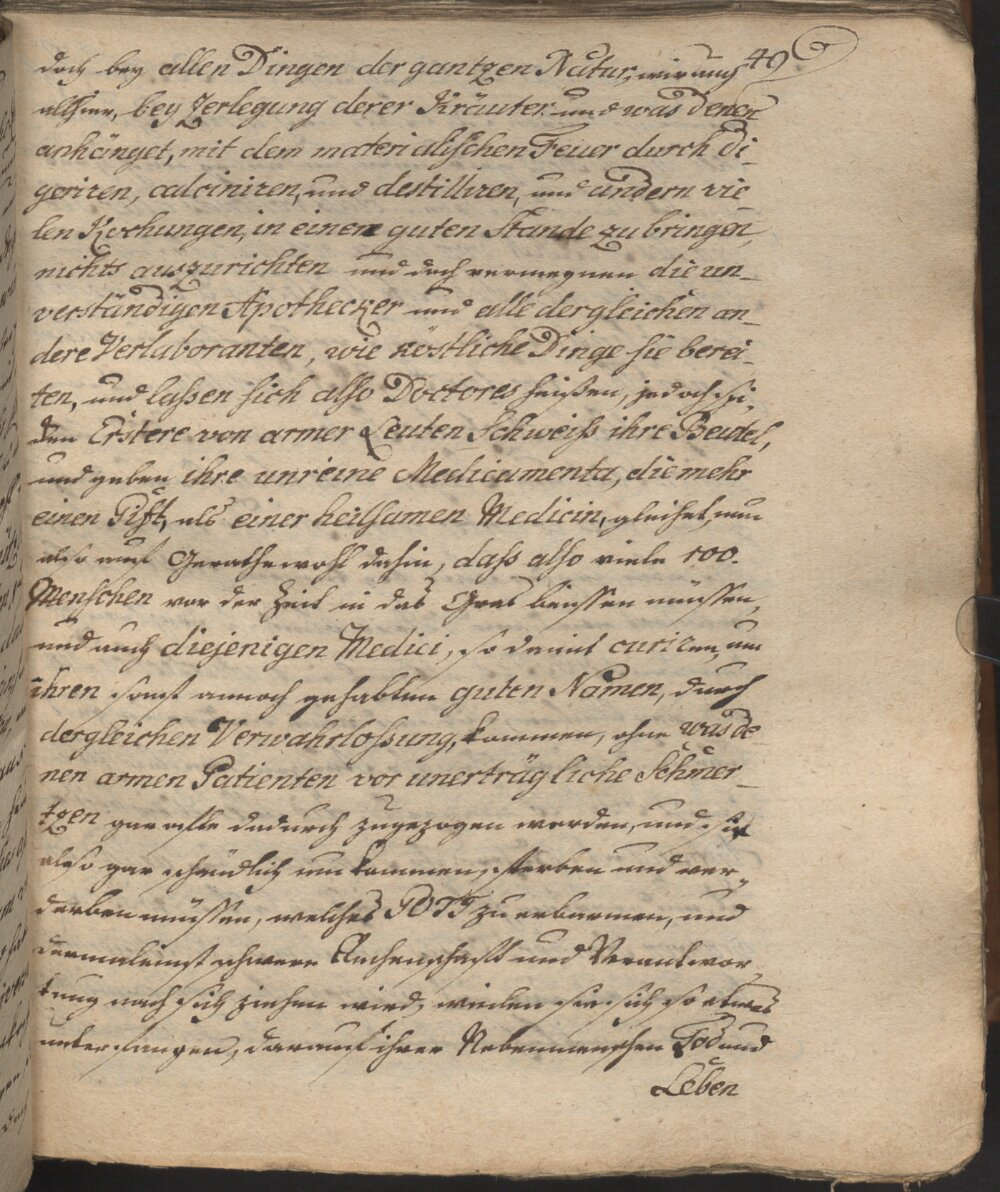 49
doch bey allen Dingen der gantzen Natur, wie auch
allhier, bey Zerlegung derer Kräuter und was denen
anhänget, mit dem materialischen Feuer durch di-
geriren, calciniren, und destilliren, und andern vie-
len Kochungen, in einen guten Stande zu bringen,
nichts auszurichten und doch vermeynen die un-
verständigen Apothecker und alle dergleichen an-
dere Verlaboranten, wie köstliche Dinge sie berei-
ten, und laßen sich also Doctores heißen, jedoch
den Erstere von armer Leuten Schweiß ihre Beutel,
und geben ihre unreine Medicamenta, die mehr
einen Gift, als einer heilsamen Medicin, gleichet, nun
also auf Gerathewohl dahin, daß also viele 100.
Menschen vor der Zeit in das Gras beissen müssen,
und auch diejenigen Medici, so damit curiren, um
ihren sonst annoch gehabten guten Namen, durch
dergleichen Verwahrloßung, kommen, ohne was de-
nen armen Patienten vor unerträgliche Schmer-
tzen gar offte dadurch zugezogen werden, und sie
also gar schändlich um kommen, sterben und ver-
derben müssen, welches GOTT zu erbarmen, und
dermaleinst schwere Rechenschafft und Verantwor-
tung nach sich ziehen wird, sie sich so etwas
unterfangen, darauf ihrer Nebenmenschen Tod und
Leben